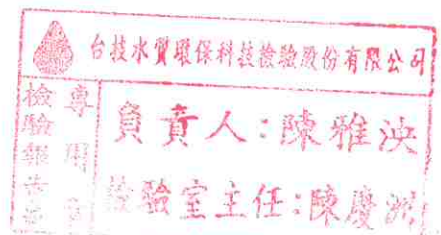 台技水質環保科技檢驗股份有限公司
檢驗報告
專用章
負責人：陳雅泱
檢驗室主任：陳慶